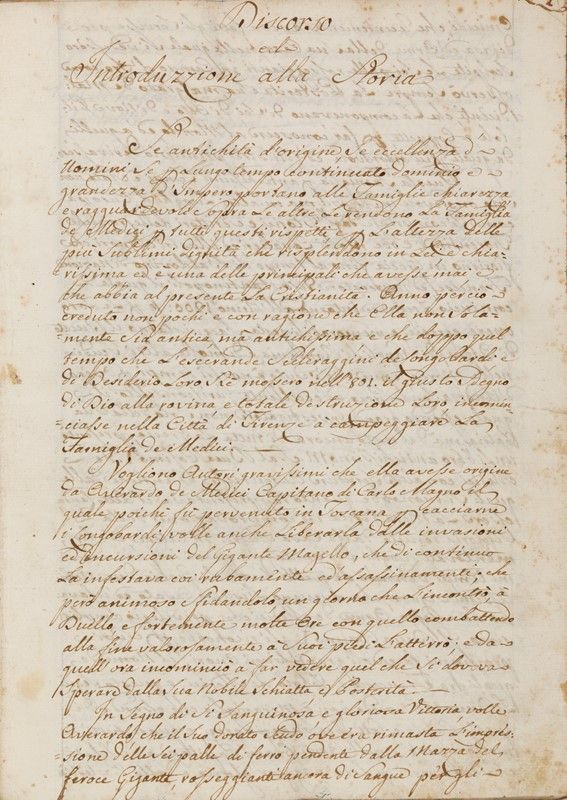 Discorso
ed
Introduzzione alla Storia
Se antichità d'origine Se eccellenza d'
Uomini Se p Lungo tempo continuato dominio e
grandezza d'Impero portano alle Famiglie chiarezza
e ragguardevole sopra Le altre, Le rendono La Famiglia
de Medici p tutti questi rispetti e p L'altezza delle
più Sublimi dignità che risplendono in Lei è chia-
rissima ed è una delle principali che avesse mai e
che abbia al presente La Cristianità. Anno perciò
creduto non pochi e con ragione che Ella non sola-
mente sia antica ma antichissima e che doppo quel
tempo che Le esecrande Scelleraggini de Longobardi e
di Desiderio Loro Rè mossero nell' 801. il giusto Sdegno
di Dio alla rovina e totale destruzzione Loro incomin-
ciasse nella Città di Firenze à campeggiare La
Famiglia de Medici. —
Vogliono Autori gravissimi che ella avesse origine
da Averardo de Medici Capitano di Carlo Magno il
quale poichè fù pervenuto in Toscana p cacciarne
i Longobardi volle anche Liberarla dalle invasioni
ed incursioni del Gigante Mugello, che di continuo
La infestava coi rubamenti ed assassinamenti; che
però animoso sfidandolo un giorno che L'incontrò à
Duello e fortemente molte Ore con quello combattendo
alla fine valorosamente à Suoi piedi L'atterrò; e da
quell' ora incominciò a far vedere quel che Si doveva
Sperare dalla Sua Nobile Schiatta e Posterità. —
In Segno di Si Sanguinosa e gloriosa Vittoria volle
Averardo che il Suo dorato Scudo ove era rimasta L'impres-
sione delle Sei palle di ferro pendente dalla Mazza del
feroce Gigante, rosseggianti ancora di Sangue per gli